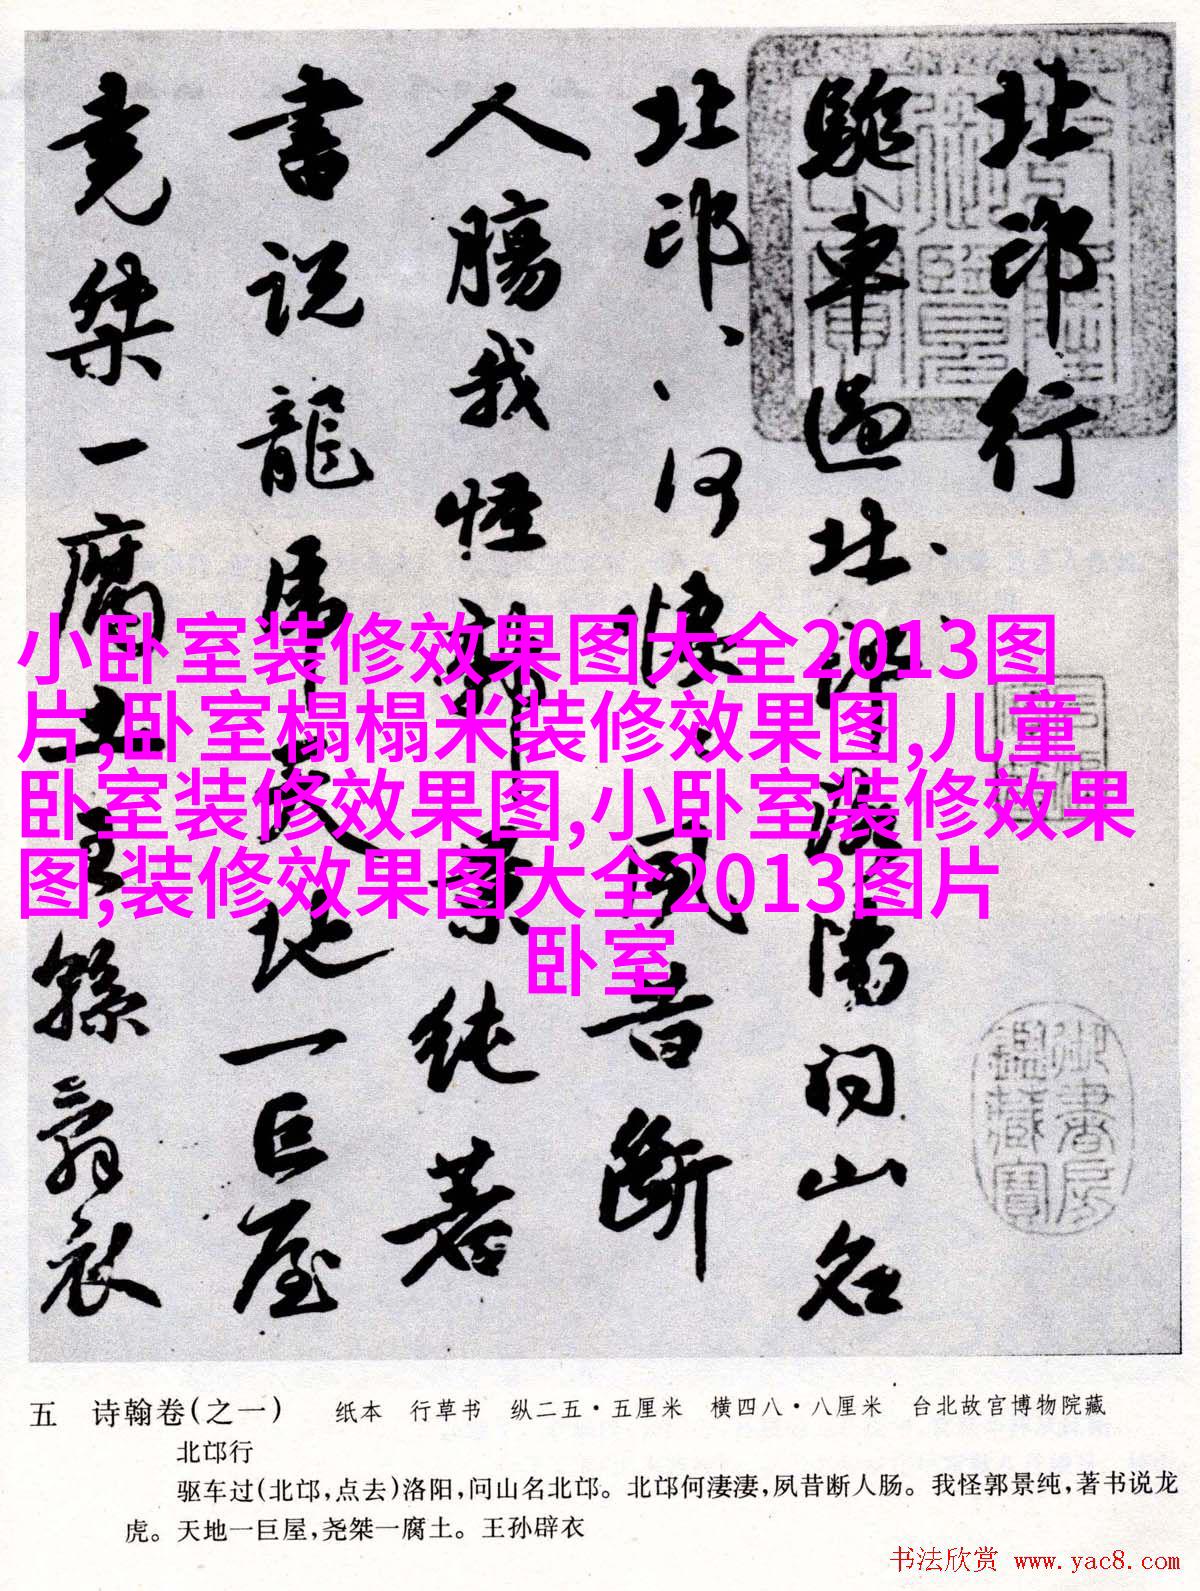 北邙行
駈車過北邙洛陽問山名
北邙、、何悽、夙昔斷
人腸我怪郭景純著
書說龍虎天地一巨屋
堯桀一腐土王孫辟衣
御書房鑑藏寶
小卧室装修效果图大全2013图
片,卧室榻榻米装修效果图,儿童
卧室装修效果图,小卧室装修效果
图,装修效果图大全2013图片
卧室
五 诗翰卷(之一) 纸本 行草书 纵二五·五厘米 横四八·八厘米 台北故宫博物院藏
北邙行
驱车过(北邙,点去)洛阳,问山名北邙。北邙何淒淒,夙昔断人肠。我怪郭景纯,著书说龙
虎。天地一巨屋,尧桀一腐土。王孙辟衣
书法欣赏 www.yac8.com